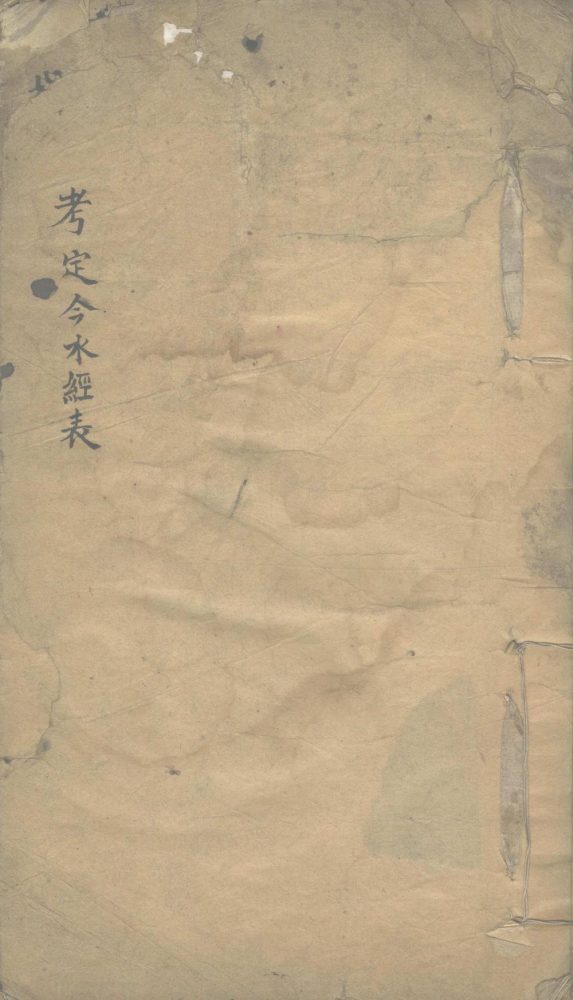 考定今水經表